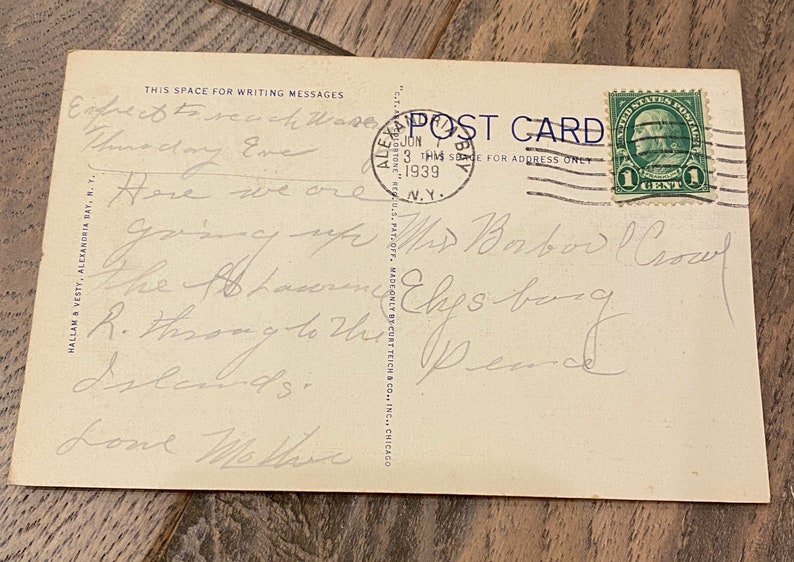 THIS SPACE FOR WRITING MESSAGES
Expect to reach
Thursday Eve
Here we are
going up
the St Lawrence
R. through to the
Islands.
Love Mother
HALLAM & VESTY, ALEXANDRIA BAY, N. Y.
"C.T. REG. U.S. PAT. OFF. MADE ONLY BY CURT TEICH & CO., INC., CHICAGO
POST CARD
THIS SPACE FOR ADDRESS ONLY
ALEXANDRIA BAY
JUN 7
3 PM
1939
N.Y.
UNITED STATES POSTAGE
FRANKLIN
1 CENT 1
Crowl
Elysburg
Penna